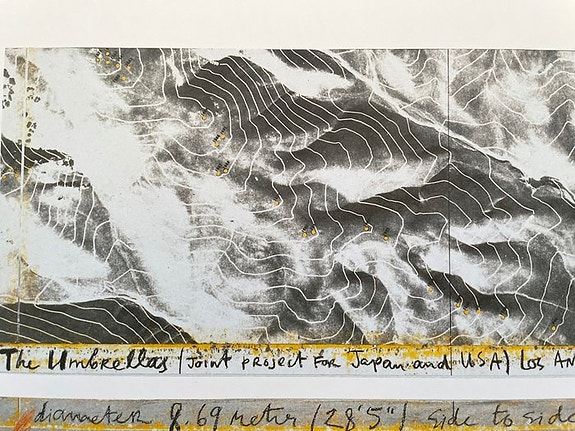 The Umbrellas (Joint project for Japan and U.S.A) Los AN
diameter 8.69 meter (28'5") side to side